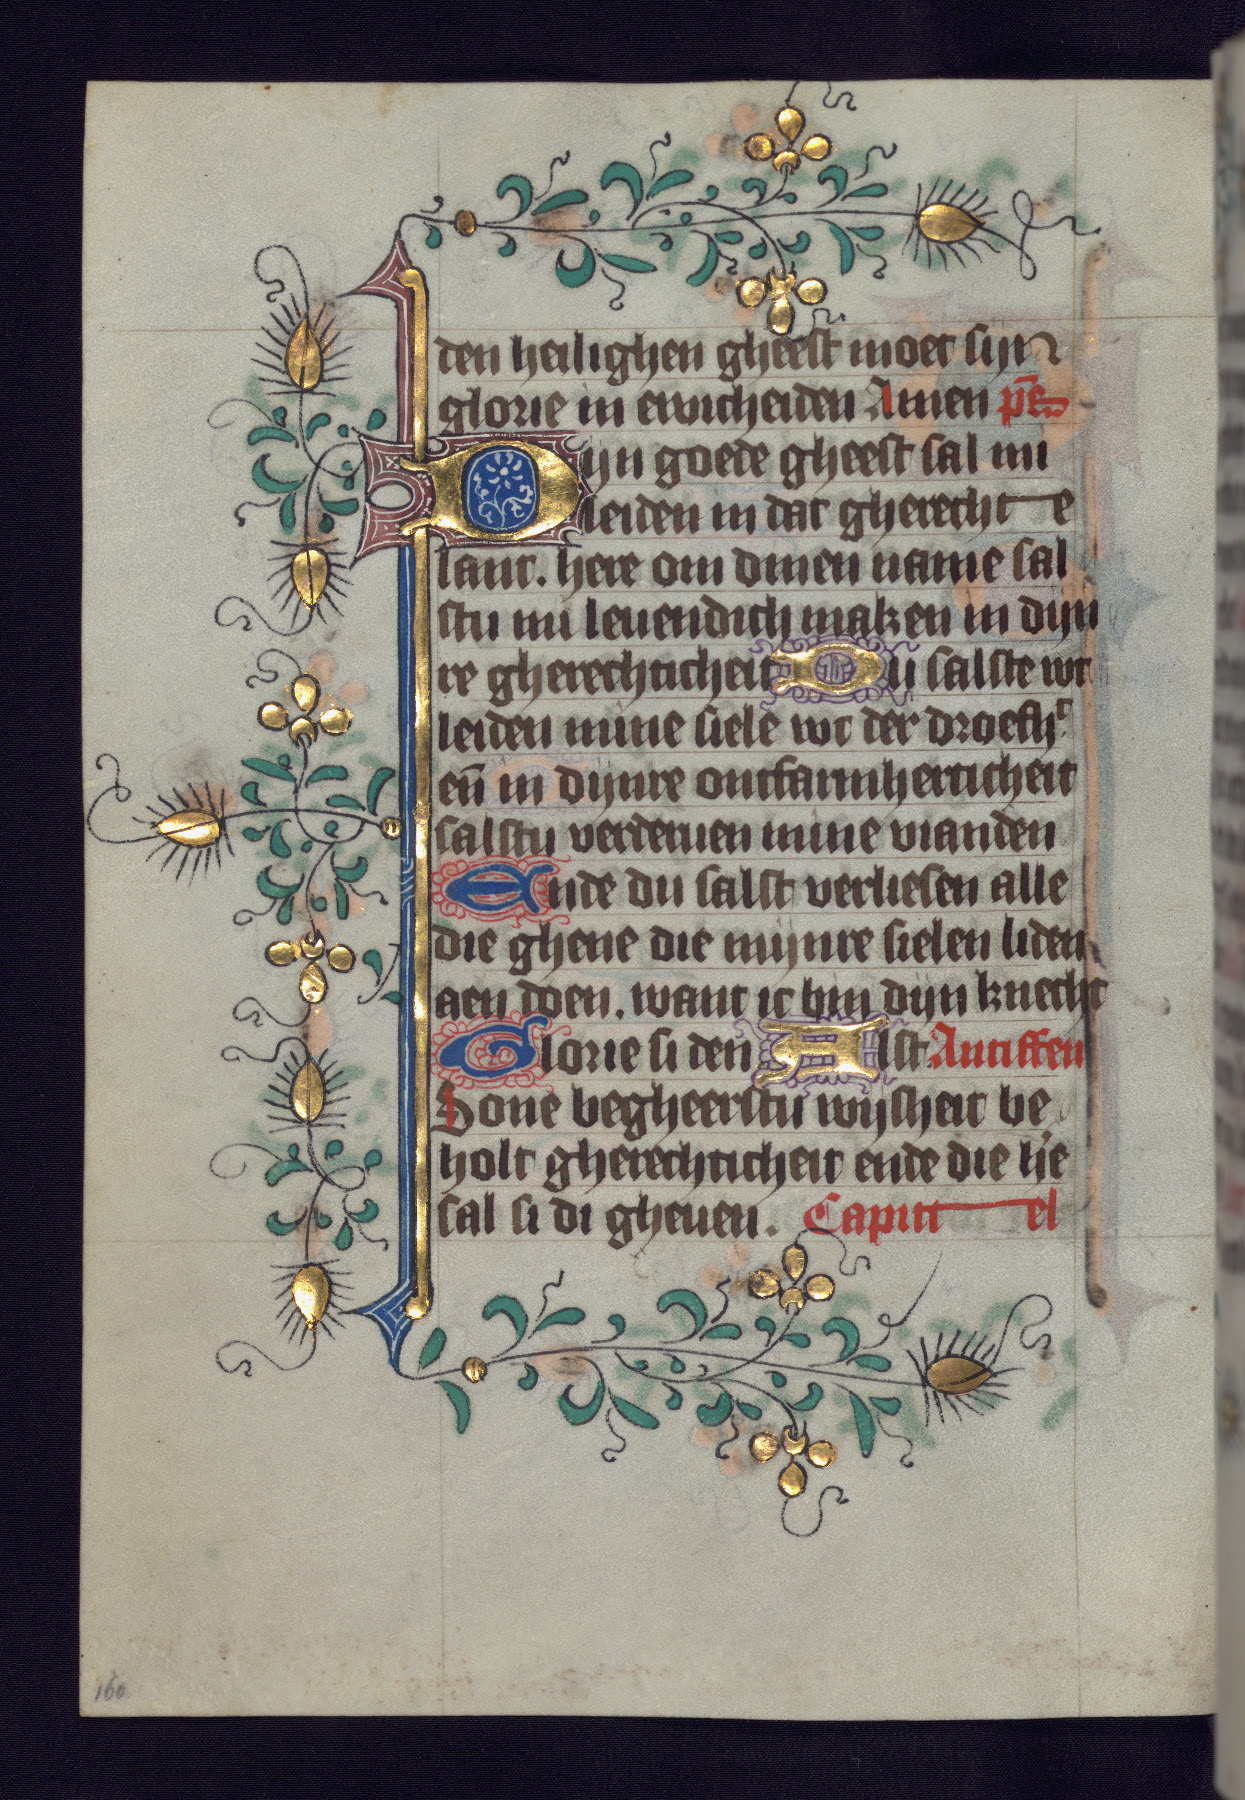 den heilighen gheest moet sijn
glorie in ewicheiden Amen p̄s
Dijn goede gheest sal mi
leiden in dat gherecht e
lant. here om dinen name sal
stu mi leuendich maken in dijn
re gherechticheit Du salste wt
leiden mine siele wt der droefht
en̄ in dijnre ontfarmherticheit
salstu verderuen mine vianden
Ende du salst verliesen alle
die ghene die mijnre sielen liden
aen doen. want ic bin dijn knecht
Glorie si den Alst Antiffen
Sone begheerstu wijsheit be
holt gherechticheit ende die he're
sal si di gheuen. Capitt el
160